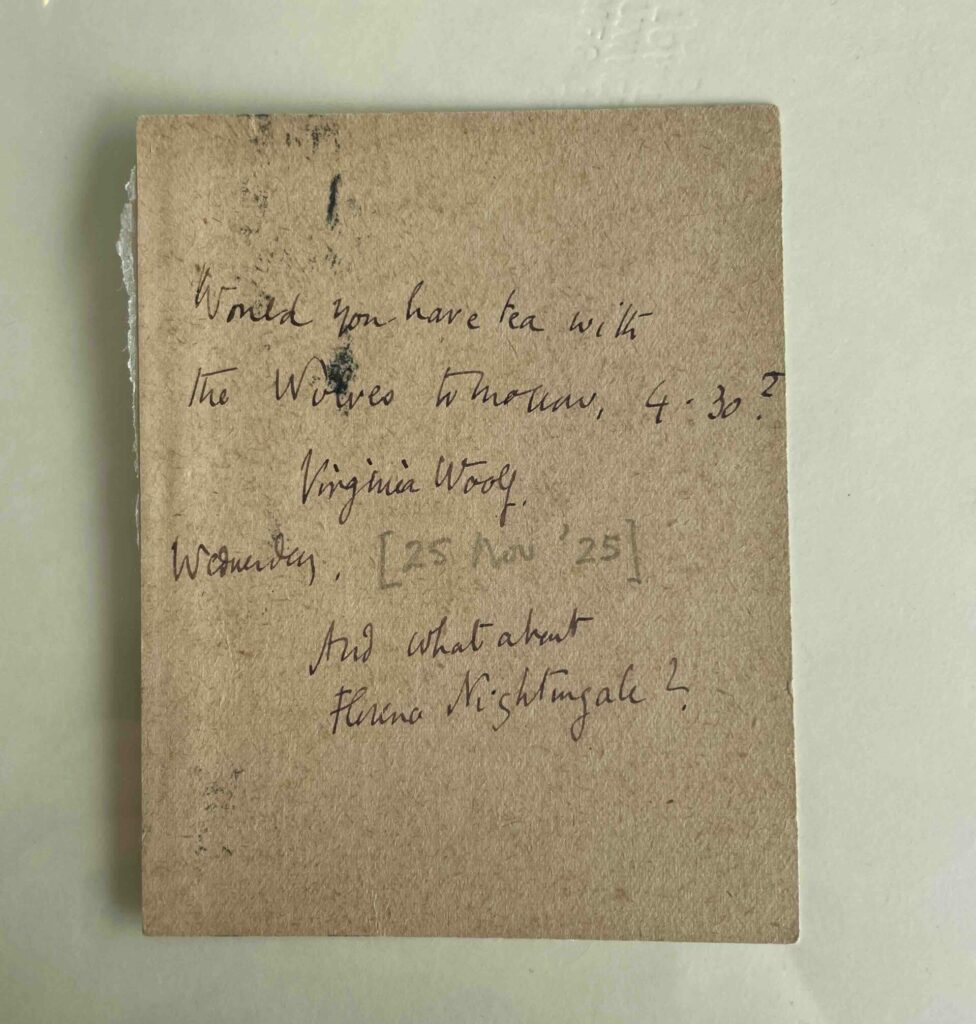 Would you have tea with
the Wolves tomorrow, 4.30?
Virginia Woolf.
Wednesday. [25 Nov '25]
And what about
Florence Nightingale?